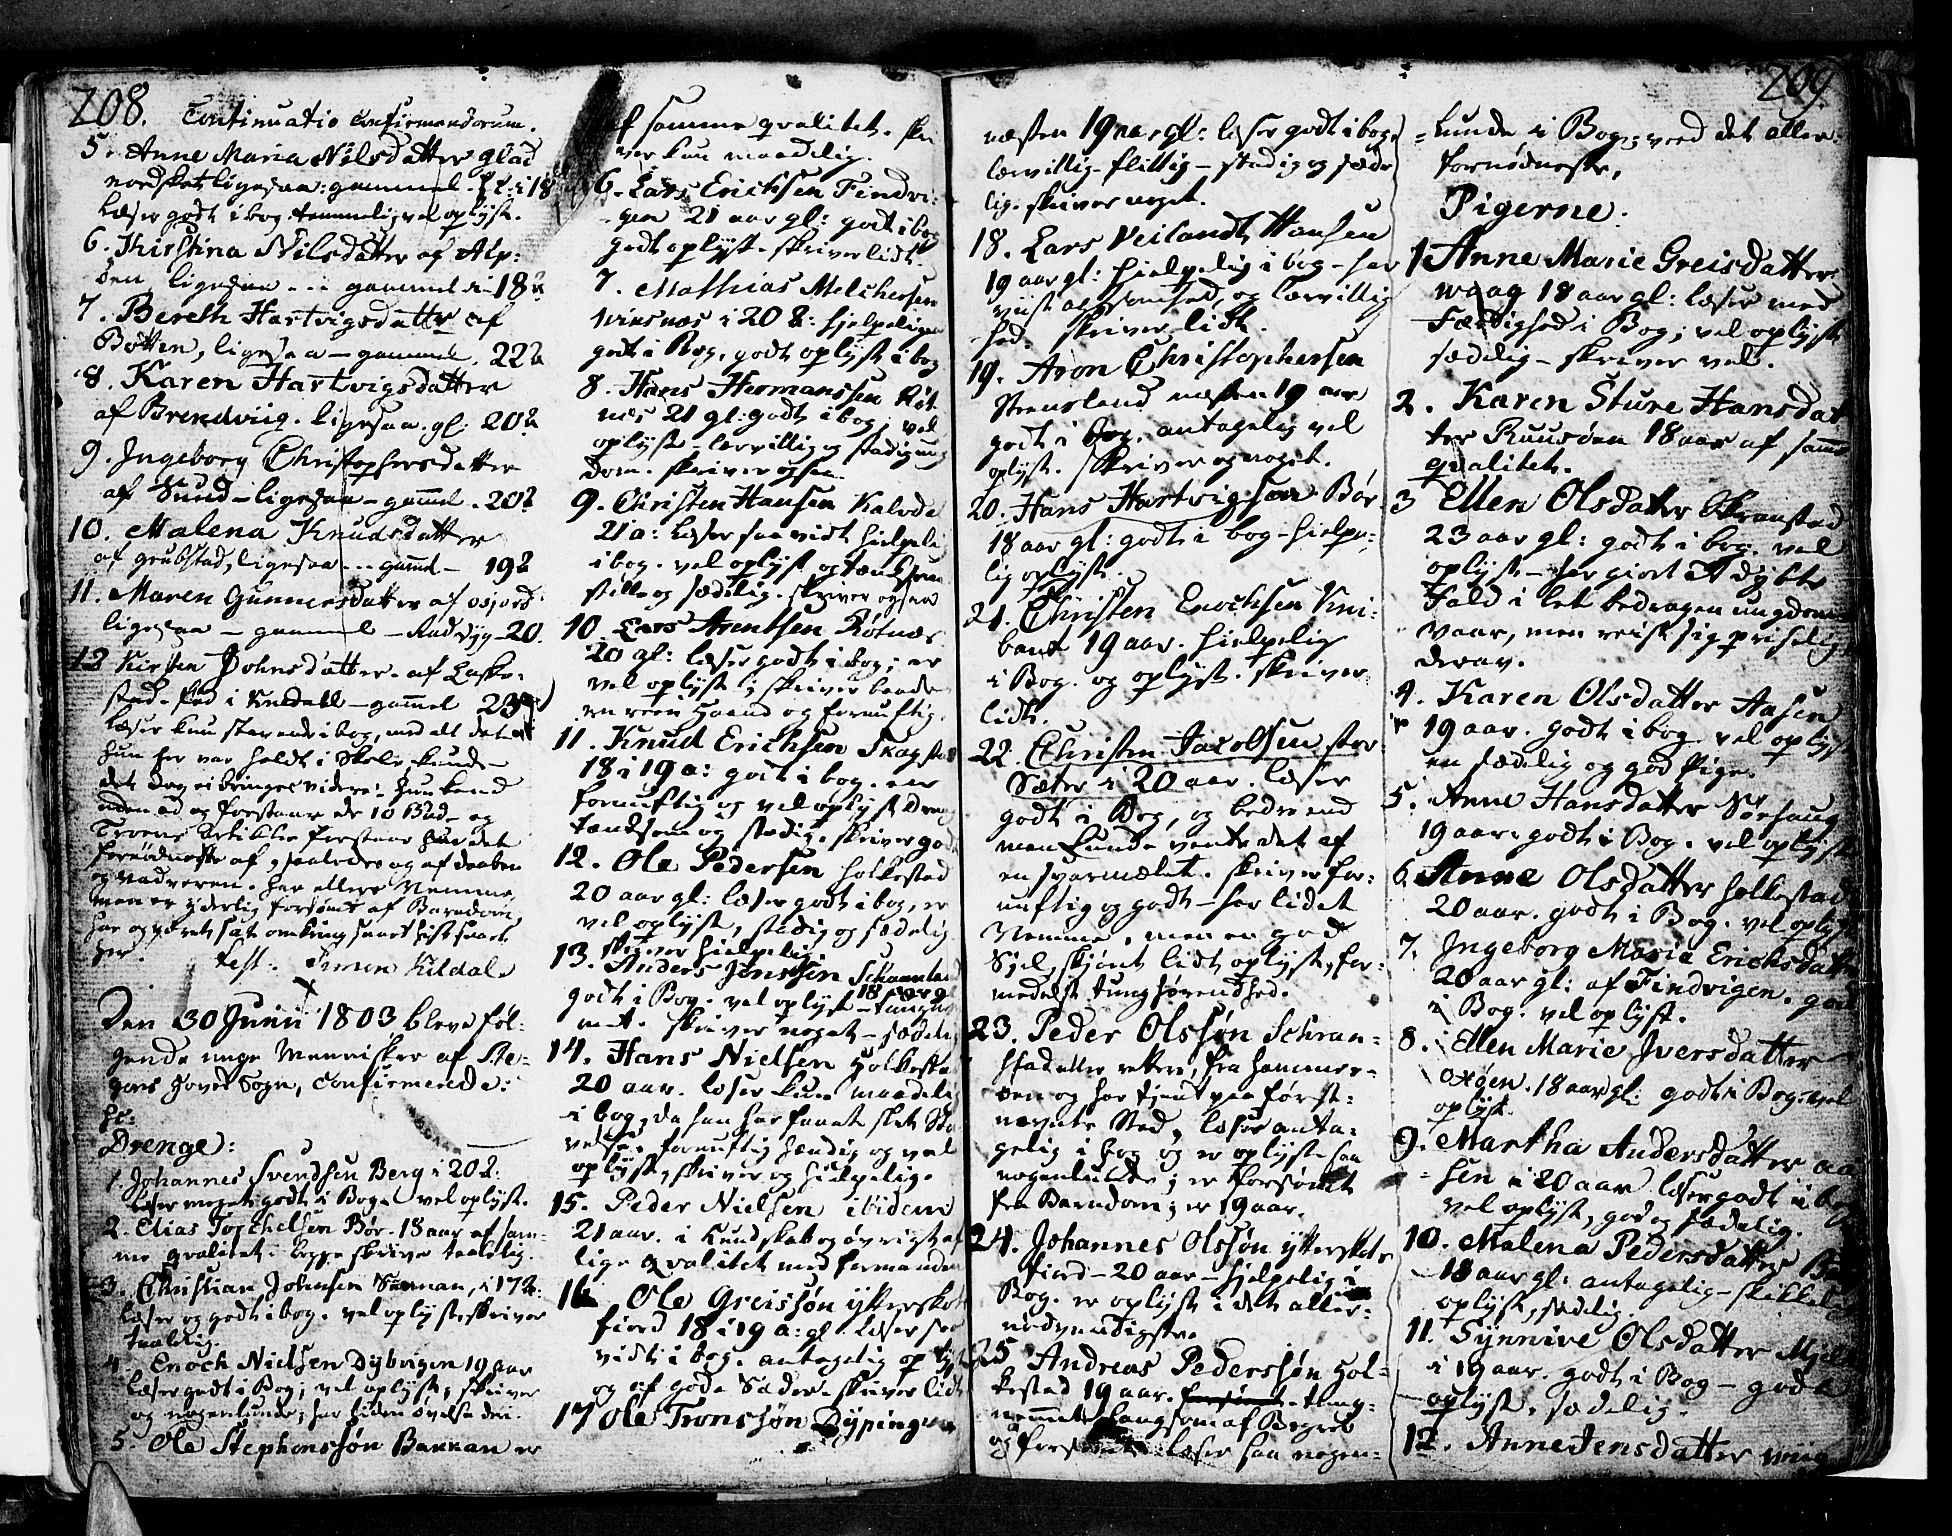 208. Continuatio Confirmandorum.
5. Anne Maria Nilsdatter Glad
nordskot ligesaa: gammel. 18
læser godt i bog temmelig vel oplyst.
6. Kirstina Nilsdatter af Alp:
øen ligesaa - - gammel 18
7. Bereth Hartvigsdatter af
Botten, ligesaa - gammel. 22
8. Karen Hartvigsdatter
af Brendviig. ligesaa. gl: 20
9. Jngeborg Christophersdatter
af Sund - ligesaa - gaml. 20
10. Malena Knudsdatter
af Grubstad, ligesaa - - gaml - 19
11. Maren Gunnersdatter af
ligesaa - gammel - 20.
12 Kirsten Johnsdatter. af Laske-
stad. fød i Kieldall - gammel 23
læser kun stavende i bog, med alt det at
hun har var holdt i Skole, kunde
det dog ei bringes videre. hun kand
uden ad og forstaar de 10 Bud - og
Troens Artikler forstaar hun det
fornødneste af, og af daaben
og nadveren. har ellers Nemme,
men er yderlig forsømt af Barndom,
har og været sat omkring snart hist snart
her. test. Simon Kildal.
Den 30 Junii 1803 bleve føl-
gende unge Mennisker af Ste-
gens Hoved Sogn, Confirmerede:
Drenge:
1. Johannes Svendsen Berg i 20
læser meget godt i Bog. vel oplyst.
2. Elias Torchelsen Bør. 18 aar af sam-
me qvalitet i begge skriver taalelig.
3. Christian Johensen Snman, i 17
læser og godt i bog. vel oplyst skriver
taalelig.
4. Enoch Nielsen Dybvigen 19 aar
læser godt i Bog; vel oplyst; skriver
og nogenlunde; har liden øvelse deri.
5. Ole Stephenssøn Bankan er
af samme qvalitet. skri
ver kun maadelig.
6. Lars Erichsen Findvi-
gen 21 aar gl: godt i bog
godt oplyst. skriver lidt.
7. Mathias Melchersen
vinsnæs i 20 : hjelpeligen
godt i Bog, godt oplyst i bog
8. Hans Hermanssen Røt-
næs 21 gl: godt i bog, vel
oplyst - lærvillig og stadig ung
dom. skriver ogsaa
9. Christen Hansen Kalvda
21 a: læser saa vidt hielpeli
i bog. vel oplyst og tænksom
stille og sædelig. skriver ogsaa
10. Lars Arentsen Røtnæs
20 gl: læser godt i bog; er
vel oplyst skriver baade
en reen Haand og fornuftig.
11. Knud Erichsen Skagstad
18 i 19 a: godt i bog. en
fornuftig og vel oplyst Dreng
tænksom og stadig. skriver godt
12. Ole Pedersen Holkestad
20 aar gl: læser godt i bog, er
vel oplyst, stadig og sædelig
skriver hielpelig.
13. Anders Jenssen Schranstad
18 aar gl
godt i Bog. vel oplyst - tungt
met. skriver noget - sædelig
14. Hans Nielsen Holkestad
20 aar. læser kun maadelig
i bog, da han har faaet slet Stø
velse. fornuftig hændig og vel
oplyst, skriver og hielpelig.
15. Peder Nielsen ibidem
21 aar. i Kundskab og øvrigt af
lige qvalitet med formanden
16 Ole Greissøn ytterskot
fiord 18 i 19 a: gl. læser saa
vidt i bog. antagelig oplyst
og af gode Sæder. skriver lidt
17 Ole Tronssøn Dypingen
209
næsten 19 aar gl: læser godt i bog,
lærvillig flittig - stadig og sæde
lig. skriver noget.
18. Lars Veilandt Hansen
19 aar gl: hielpelig i bog - har
viist agtsomhed, og lærvillig
hed. skriver lidt.
19. Aron Christophersen
Stensland næsten 19 aar
godt i bog. antagelig vel
oplyst. skriver og noget.
20. Hans Hartvigsen Bør-
18 aar gl: godt i bog - hielpe-
lig oplyst.
21. Christen Enochsen Kni-
bant 19 aar. hielpelig
i Bog. og oplyst. skriver
lidt.
22. Christen Jacobsen stor-
Sæter i 20 aar. læser
godt i Bog, og bedre end
man kunde vente det af
en svarmælet. skriver for-
nuftig og godt - har lidet
Nemme, men en god
Siel skjønt lidt oplyst, for-
medelst tunghørendhed.
23. Peder Olssøn Schran-
stad eller rettere, fra Hammer-
øen og har tjent paa først-
nævnte Sted, læser anta-
gelig i bog og er oplyst saa
nogenlunde; er forsømt
fra Barndom; er 19 aar.
24. Johannes Olssøn ytterskots
fiord - 20 aar - hjelpelig i
Bog. er oplyst i det aller-
nødvendigste.
25 Andreas Pederssøn Hol-
kestad 19 aar. forsømt - tung-
nemmet langsom af Begreb
og forsømt: læser saa nogen-
=lunde i Bog; veed det aller-
fornødneste,
Pigerne.
1 Anne Marie Greisdatter
waag 18 aar gl: læser med
Færdighed i Bog; vel oplyst
sædelig - skriver vel.
2. Karen Sture Hansdat
ter Ruusøen 18 aar af samme
qvalitet.
3 Ellen Olsdatter Skranstad
23 aar gl: godt i bog. vel
oplyst - har giort et dybt
Fald i let bedragen ungdoms
Vaar, men reist sig priselig
derav.
4. Karen Olsdatter Aasen
19 aar. godt i bog. vel oplyst
en sædelig og god Pige.
5. Anne Hansdatter Nørhaug
19 aar. godt i Bog. vel oplyst
6. Anne Olsdatter Holkestad
20 aar. godt i Bog. vel oplyst
7. Jngeborg Maria Erichsdatter
20 aar gl: af Findvigen. godt
i Bog. vel oplyst.
8. Ellen Marie Jversdatter
Moen. 18 aar gl: godt i Bog. vel
oplyst.
9. Martha Andersdatter aa
sen i 20 aar læser godt i bog
vel oplyst, god og sædelig.
10. Malena Pedersdatter
18 aar gl: antagelig - skikkelig
oplyst, sædelig.
11. Synnive Olsdatter
i 19 aar. godt i Bog - godt
oplyst, sædelig.
12. Anne Jensdatter viig